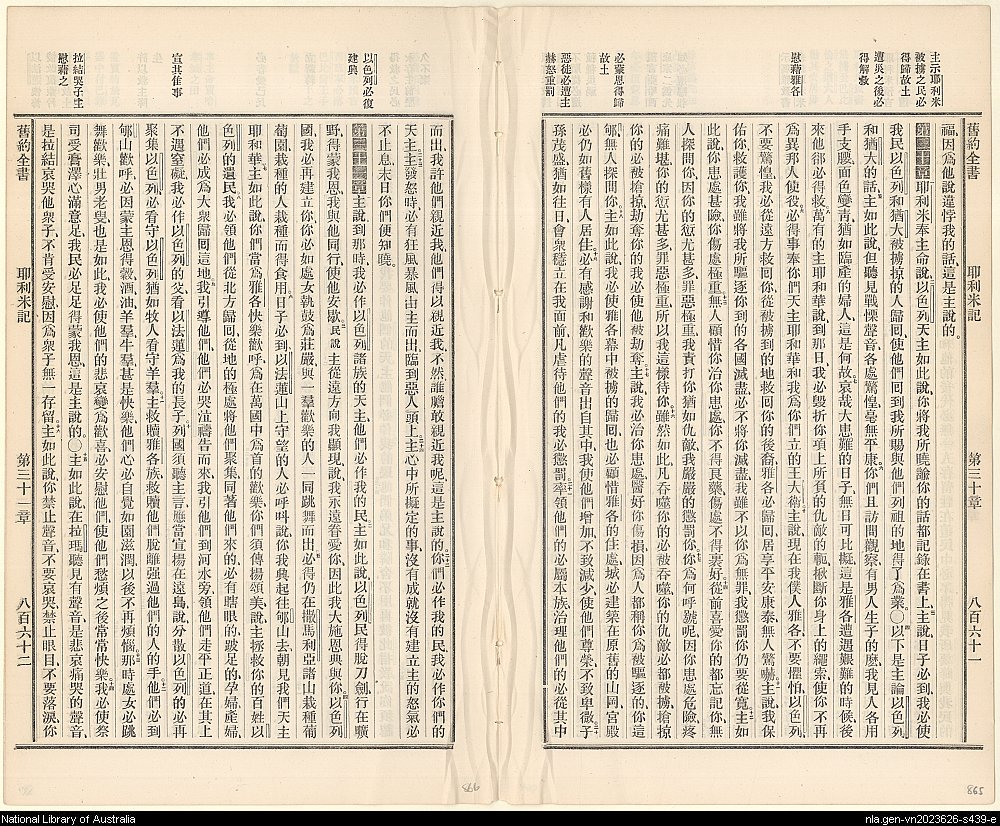 主示耶利米
被擄之民必
得歸故土
遭災之後必
得解救
慰藉雅各
必蒙恩得歸
故土
惡徒必遭主
赫怒重罰
舊約全書 耶利米記 第三十章 八百六十一
福、因爲他說違悖我的話、這是主說的。
第三十章 耶利米奉主命說、以色列天主如此說、你將我所曉諭你的話都記錄在書上、主說、日子必到、我必使
我民以色列和猶大被擄掠的人歸囘、使他們囘到我所賜與他們列祖的地、得了爲業。〇以下是主論以色列
和猶大的話、主如此說、但聽見戰慄聲音、各處驚惶、毫無平康、你們且訪問觀察、有男人生子的麽、我見人各用
手支腰、面色變靑、猶如臨產的婦人、這是何故、哀哉、大患難的日子、無日可比擬、這是雅各遭遇艱難的時候、後
來他郤必得救、萬有的主耶和華說、到那日我必毀折你項上所負的仇敵的軛、揪斷你身上的繩索、使你不再
爲異邦人使役、必得事奉你們天主耶和華、和我爲你們立的王大衞、主說、現在我僕人雅各、不要懼怕、以色列、
不要驚惶、我必從遠方救囘你、從被擄到的地救囘你的後裔、雅各必歸囘、居享平安康泰、無人驚嚇、主說、我保
佑你、救護你、我雖將我所驅逐你到的各國滅盡、必不將你滅盡、我雖不以你爲無罪、我懲罰你、仍要從寬、主如
此說、你患處甚險、你傷處極重、無人顧惜你、治你患處、你不得良藥、傷處不得裹好、從前喜愛你的都忘記你、無
人探問你、因你的愆尤甚多、罪惡極重、我責打你、猶如仇敵、我嚴嚴的懲罰你、你爲何呼號呢、因你患處危險、疼
痛難堪、你的愆尤甚多、罪惡極重、所以我這樣待你、雖然如此、凡吞噬你的必被吞噬、你的仇敵必都被擄、搶掠
你的必被搶掠、刼奪你的、我必使他被刼奪、主說、我必治你患處、醫好你傷損、因爲人都稱你爲被逐的、
無人探問你、主如此說、我必使雅各幕中被擄的歸囘、也必顧惜雅各的住處、城必建築在原舊的山岡、宮殿
必仍如舊樣有人居住、必有感謝和歡樂的聲音出自其中、我使他們增加、不致減少、使他們尊榮、不致卑微、子
孫茂盛、猶如往日、會衆穩立在我面前、凡虐待他們的、我必懲罰、率領他們的必屬本族、治理他們的必從其中
以色列必復
建興
宣其佳事
拉結哭子主
慰藉之
而出、我許他們親近我、他們得以親近我、不然、誰膽敢親近我呢、這是主說的、你們必作我的民、我必作你們的
天主、主發怒時、必有狂風暴風由主而出、臨到惡人頭上、主心中所擬定的事、沒有成就、沒有建立、主的怒氣必
不止息、末日你們便知曉。
第三十一章 主說、到那時我必作以色列諸族的天主、他們必作我的民、主如此說、以色列民得脫刀劍、行在曠
野、得蒙我恩、我與他同行、使他安歇、民說主從遠方向我顯現、說、我永遠眷愛你、因此我大施恩典與你、以色列
國、我必再建立你、你必如處女執鼓爲莊嚴、與一羣歡樂的人一同跳舞而出、必得仍在撒馬利亞諸山栽種葡
萄園、栽種的人、栽種而得食用、日子必到、以法蓮山上守望的人必呼叫說、你我興起、往郇山去、朝見我們天主
耶和華、主如此說、你們當爲雅各快樂歡呼、爲在萬國中爲首的歡樂、你們須傳揚頌美說、主拯救你的百姓、以
色列的遺民、我必領他們從北方歸囘、從地的極處將他們聚集、同著他們來的必有瞎眼的、跛足的、孕婦產婦、
他們必成爲大衆歸囘這地、我引導他們、他們必哭泣禱告而來、我引他們到河水旁、領他們走平正道、在其上
不遇窒礙、我必作以色列的父、看以法蓮爲我的長子、列國須聽主言、應當宣揚在遠島、說、分散以色列的必再
聚集以色列、必看守以色列、猶如牧人看守羊羣、主救贖雅各族、收贖他們脫離強過他們的人的手、他們必到
郇山歡呼、必因蒙主恩得穀酒油羊羣牛羣、甚是快樂、他們心必自覺如園滋潤、以後不再煩惱、那時處女必跳
舞歡樂、壯男老叟也是如此、我必使他們的悲哀變爲歡喜、必安慰他們、使他們愁煩之後常常快樂、我必使祭
司受膏澤、心滿意足、我民必足足得蒙我恩、這是主說的。〇主如此說、在拉瑪聽見有聲音、是悲哀痛哭的聲音、
是拉結哀哭他衆子、不肯受安慰、因爲衆子無一存留、主如此說、你禁止聲音不要哀哭、禁止眼目不要落淚、你
舊約全書 耶利米記 第三十一章 八百六十二
866
865
National Library of Australia
nla.gen-vn2023626-s439-e